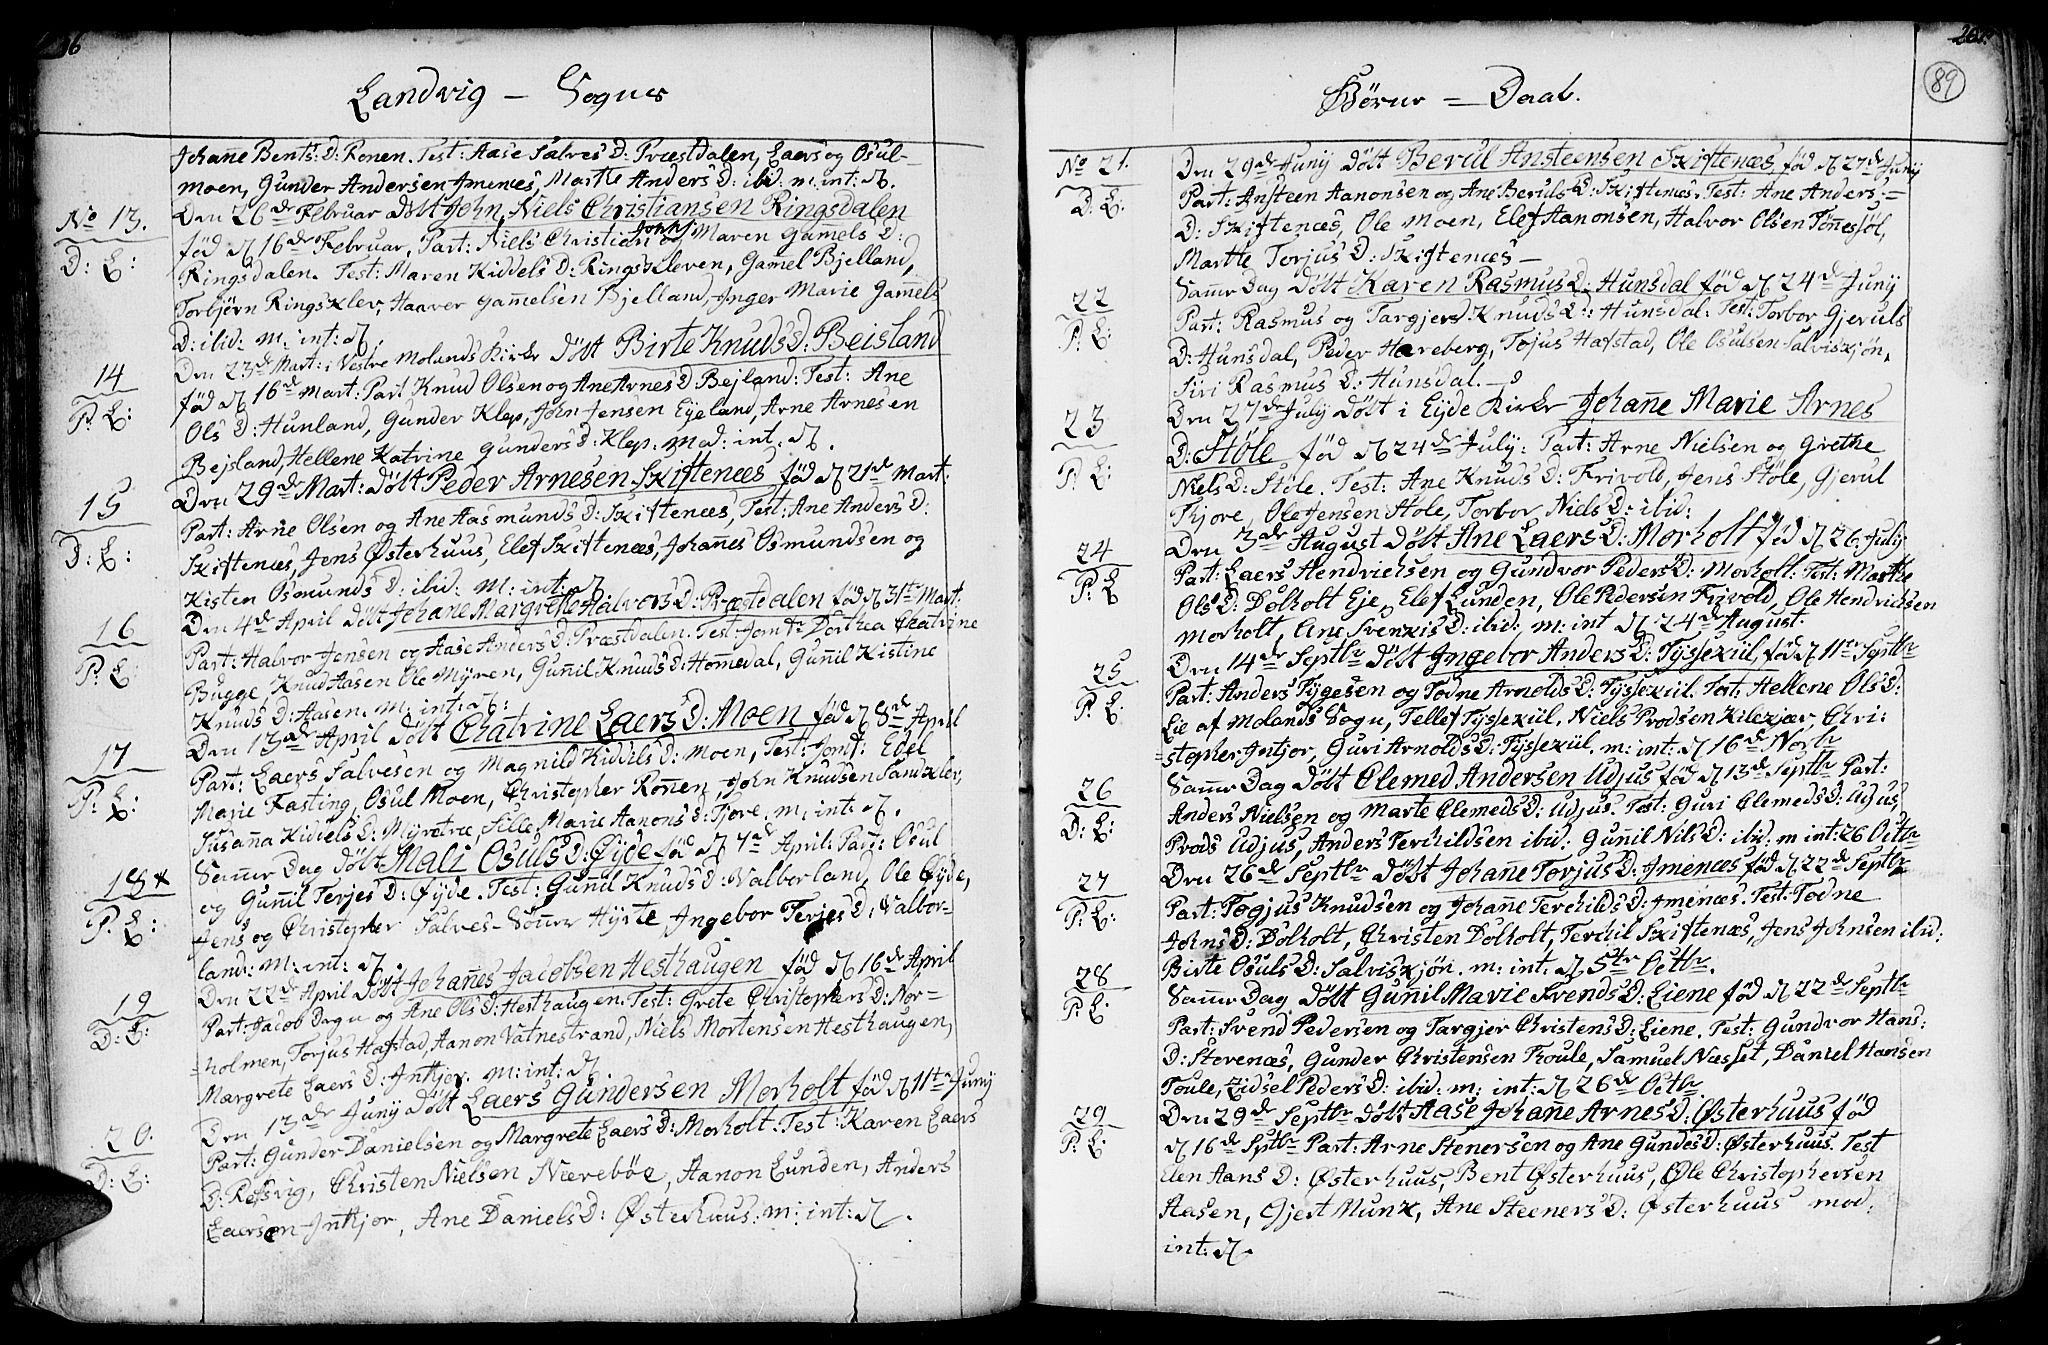 Landvig - Sogns
Johañe Bents: D: Ronen. Test: Aase Salves D: Præstdalen, Laers og Osul-
moen, Gunder Andersen Jmenæs, Marthe Anders D: ibid: m: int: d.
No 13.
D: L:
Den 26de Februar döbt John Niels Christiansen Ringsdalen
föd d 16de Februar, Part: Niels Christian John: og Maren Gamels D:
Ringsdalen. Test: Maren Kiddels D: Ringskleven, Gamel Bjelland,
Torbjörn Ringsklev, Haaver Gamelsen Bjelland, Jnger Marie Gamels
D: ibid: m: int: d.
14
P: L:
Den 23de Mart: i Vestre Molands Kirke döbt Birte Knuds D: Beisland
föd d 16de Mart: Part Knud Olsen og Ane Arnes D Bejland: Test: Ane
Ols D: Hunland, Gunder Klep, John Jensen Eyeland, Arne Arnesen
Bejsland, Hellene Katrine Gunders D: Klep. Mod: int: d.
15
D: L:
Den 29de Mart: döbt Peder Arnesen Skiftenæs föd d 21de Mart:
Part: Arne Olsen og Ane Aasmunds D: Skiftenæs, Test: Ane Anders D:
Skiftenæs, Jens Østerhuus, Elef Skiftenæs, Johañes Osmundsen og
Kisten Osmunds D: ibid: m: int: d
16
P: L:
Den 4de April döbt Johane Margrethe Halvors D: Præstdalen föd d 31te Mart:
Part: Halvor Jensen og Aase Anders D: Præstdalen. Test Jomfr Dorthea Chatrine
Bugge, Knud Aasen Ole Myren, Guñil Knuds D: Homedal, Guñil Kistine
Knuds D: Aasen. m: int: d.
17
P: L:
Den 13de April döbt Chatrine Laers D: Moen föd d 8de April
Part: Laers Salvesen og Magnild Kiddels D: Moen, Test: Jomf: Edel
Marie Fasting, Osul Moen, Christopher Ronen, John Knudsen Sandklev,
Susanna Kiddels D: Myretræ, Sille Marie Aanons D: Fjore. m: int: d.
18 *
P: L:
Same Dag döbt Mali Osuls D: Øyde föd d 4de April: Part: Osul
og Guñil Terjes D: Øyde. Test: Guñil Knuds D: Valborland, Ole Øyde,
Jens og Christopher Salves-Söner Hyrte Jngebor Terjes D: Valbor-
land: m: int: d.
19
D: L:
Den 22de April döbt Johañes Jacobsen Hesthaugen föd d 16de April
Part: Jacob Dagn og Ane Ols D: Hesthaugen. Test: Grete Christophers D: Nor=
=holmen, Torjus Hafstad, Aanon Vatnestrand, Niels Mortensen Hesthaugen,
Margrete Laers D: Jntkjor. m: int: d.
20.
D: L:
Den 13de Junij döbt Laers Gundersen Morholt föd d 11te Junij
Part: Gunder Danielsen og Margrete Laers D: Morholt. Test: Karen Laers
D: Refsvig, Christen Nielsen Næreböe, Aanon Lunden, Anders
Laersen Jntkjor, Ane Daniels D: Østerhuus: m: int: d.
Börne = Daab.
89
No 21.
D: L:
Den 29de Junij döbt Berul Ansteensen Skiftenæs, föd d 27de Junij
Part: Ansteen Aanonsen og Ane Beruls D: Skiftenæs. Test: Ane Anders =
D: Skiftenæs, Ole Moen, Elef Aanonsen, Halvor Olsen Töñesöl,
Marthe Torjus D: Skiftenæs -
22
P: L:
Same Dag döbt Karen Rasmus D: Hunsdal föd d 24de Junij
Part: Rasmus og Targjerd Knuds D: Hunsdal. Test: Torbor Gjeruls
D: Hunsdal, Peder Hareberg, Tojus Hafstad, Ole Osulsen Salviskjön,
Siri Rasmus D: Hunsdal. -
23
P: L:
Den 27de Julij döbt i Eyde Kirke Johañe Marie Arnes
D: Stöle föd d 24de Julij: Part: Arne Nielsen og Grethe
Niels D: Stöle. Test: Ane Knuds D: Frivold, Jens Stöle, Gjerul
Fjore, Ole Jensen Stöle, Torbor Niels D: ibid:
24
P: L
Den 3de August döbt Ane Laers D: Morholt föd d 26. Julij
Part: Laers Hendrichsen og Gundvor Peders D: Morholt: Test: Marthe
Ols D: Dolholt Eje, Elef Lunden, Ole Pedersen Frivold, Ole Hendrichsen
Morholt, Ane Svenkis D: ibid: m: int d 24de August.
25
P: L:
Den 14de Septbr döbt Jngebor Anders D: Tyssekül, föd d 11te Septbr
Part: Anders Tygesen og Todne Arnolds D: Tyssekül. Test: Hellene Ols D:
Lie af Molands Sogn, Tellef Tyssekül, Niels Prodsen Kilekjær, Chri:
=stopher Jntjor, Guri Arnolds D: Tyssekül. m: int: d 16de Novbr
26
D: L:
Same Dag döbt Clemed Andersen Udjus föd d 13de Septbr Part:
Anders Nielsen og Marte Clemeds D: Udjus. Test: Guri Clemeds D: Udjus,
Prods Udjus, Anders Terchildsen ibid: Guñil Nils D: ibid: m int: 26 Octbr
27
P: L:
Den 26de Septbr döbt Johañe Torjus D: Jmenæs föd d 22de Septbr
Part: Togjus Knudsen og Johañe Terchilds D: Jmenæs. Test: Todne
Johns D: Dolholt, Christen Dolholt, Terchil Skiftenæs, Jens Johnsen ibid:
Birte Osuls D: Salviskjön. m: int: d 5te Octbr.
28
P: L:
Same Dag döbt Guñil Marie Svends D: Liene föd d 22de Septbr
Part: Svend Pedersen og Targjer Christens D: Liene. Test: Gundvor Hans:
D: Storenæs, Gunder Christensen Froule, Samuel Næsset, Daniel Hansen
Toule, Zidsel Peders D: ibid: m: int: d 26de Octbr
29
P: L:
Den 29de Septbr döbt Aase Johañe Arnes D: Østerhuus föd
d 16de Sptbr Part: Arne Stenersen og Ane Gundes D: Østerhuus. Test
Elen Hans D: Østerhuus, Bent Østerhuus, Ole Christophersen
Aasen, Gjert Munk, Ane Steeners D: Østerhuus mod:
int: d.